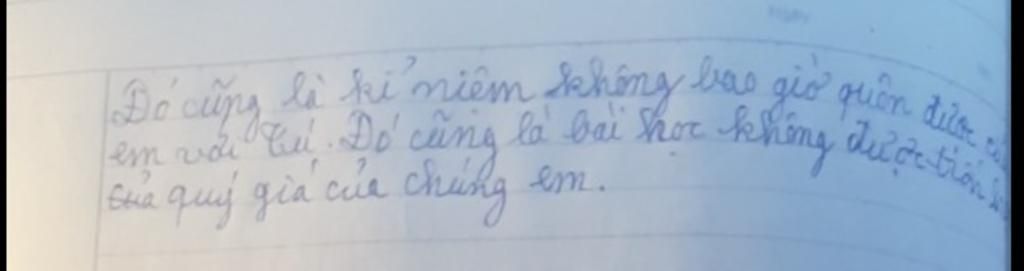 Đó cũng là kỉ niệm không bao giờ quên được của
em với Tú. Đó cũng là bài học không được trốn
quý giá của chúng em.